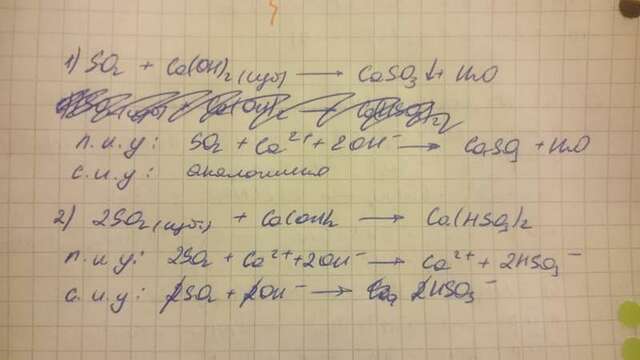 1) SO₂ + Ca(OH)₂ (изб) → CaSO₃↓ + H₂O
п.и.у: SO₂ + Ca²⁺ + 2OH⁻ → CaSO₃ + H₂O
с.и.у: аналогично
2) 2SO₂ (изб) + Ca(OH)₂ → Ca(HSO₃)₂
п.и.у: 2SO₂ + Ca²⁺ + 2OH⁻ → Ca²⁺ + 2HSO₃⁻
с.и.у: 2SO₂ + 2OH⁻ → 2HSO₃⁻